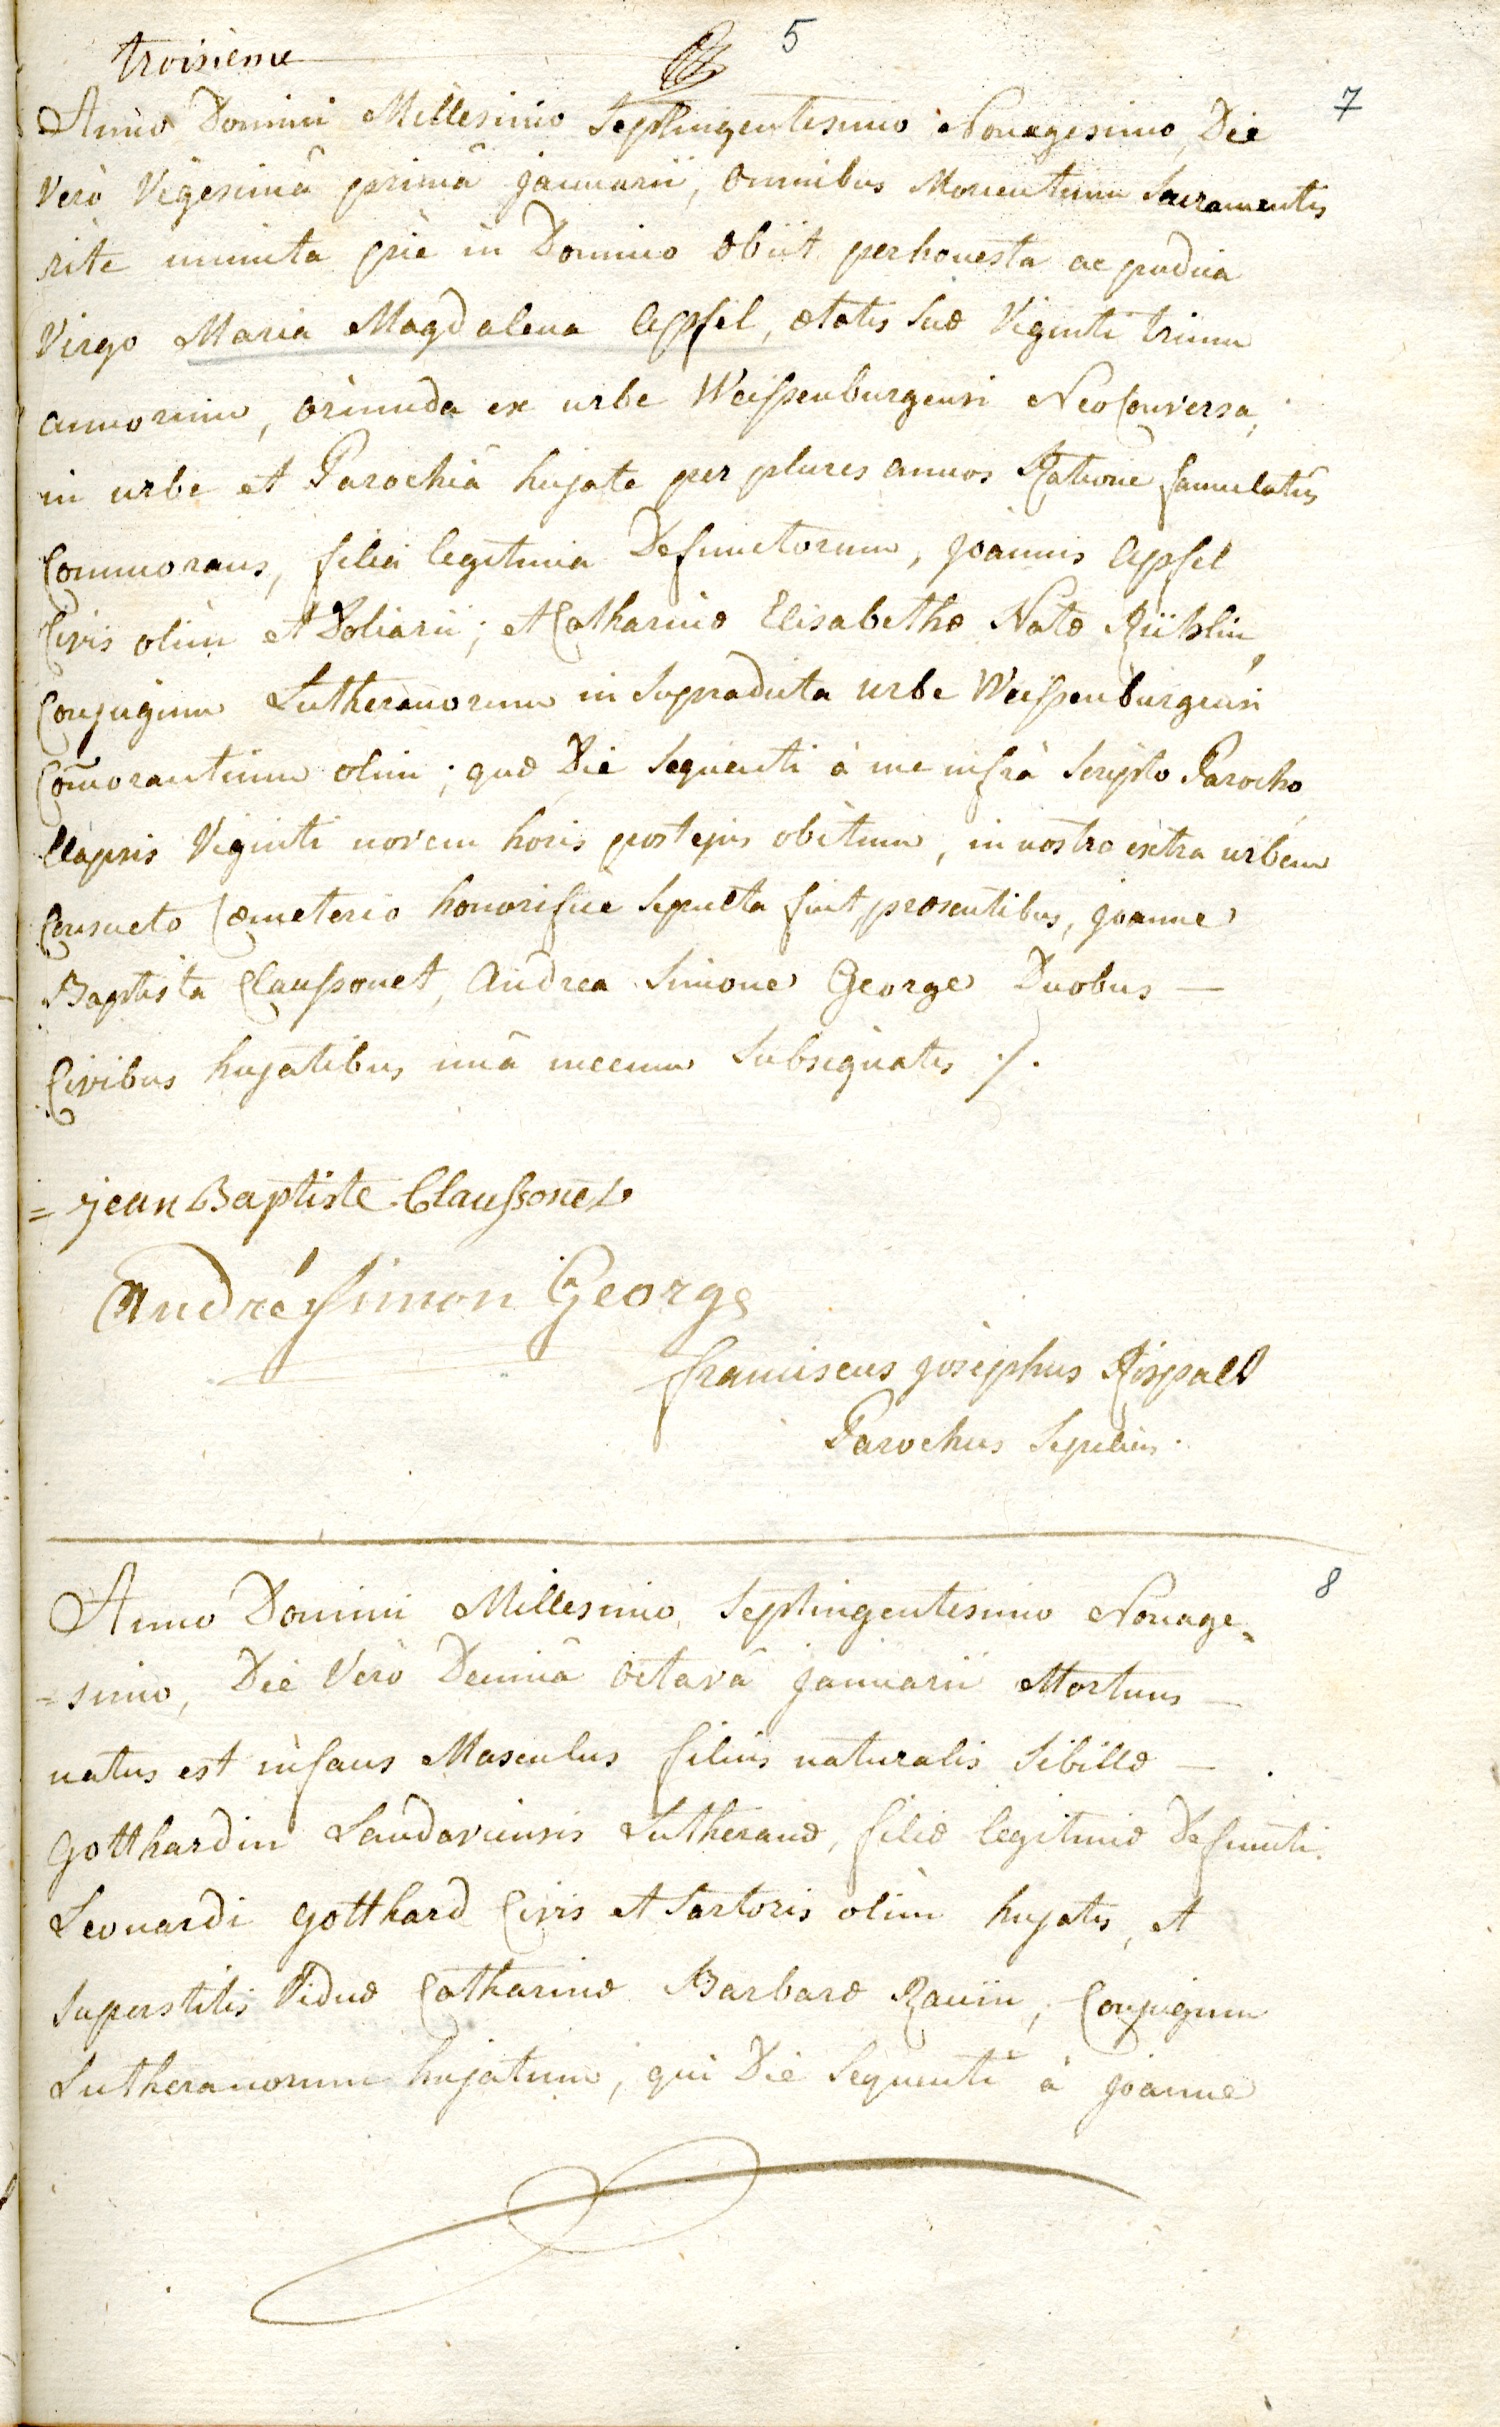 5
troisieme
7
Anno Domini Millesimo Septingentesimo Nonagesimo, Die
Verò Vigesimâ primâ januarii, omnibus Morientium Sacramentis
rite munita piè in Domino obiit perhonesta ac pudica
Virgo Maria Magdalena Apfel, ætatis suæ Viginti trium
annorum, oriunda ex urbe Weissenburgensi NeoConversa,
in urbe et Parochiâ hujate per plures annos Ratione famulatûs
Commorans, filia legitima Defunctorum, joannis Apfel
Civis olim et Doliarii; et Catharinæ Elisabethæ Natæ Rühlin,
Conjugum Lutheranorum in supradicta urbe Weissenburgensi
Com̄orantium olim; quæ Die sequenti à me infrà scripto Parocho,
Elapsis Viginti novem horis post ejus obitum, in nostro extra urbem
Consueto Cœmeterio honorificè sepulta fuit præsentibus, joanne
Baptista Claussonet, Andrea Simone George Duobus —
Civibus hujatibus unâ mecum subsignatis ./.
= jean Baptiste Claussonet
André simon George
franciscus josephus Rispald
Parochus sepeliens.
8
Anno Domini Millesimo, Septingentesimo Nonage=
=simo, Die Verò Decimâ octavâ januarii Mortuus —
natus est infans Masculus filius naturalis Sibillæ —
Gotthardin Landaviensis Lutheranæ, filiæ legitimæ Defuncti
Leonardi Gotthard Civis et Sartoris olim hujatis, et
Superstitis Viduæ Catharinæ Barbaræ, Conjugum
Lutheranorum hujatium, qui Die sequenti à joanne